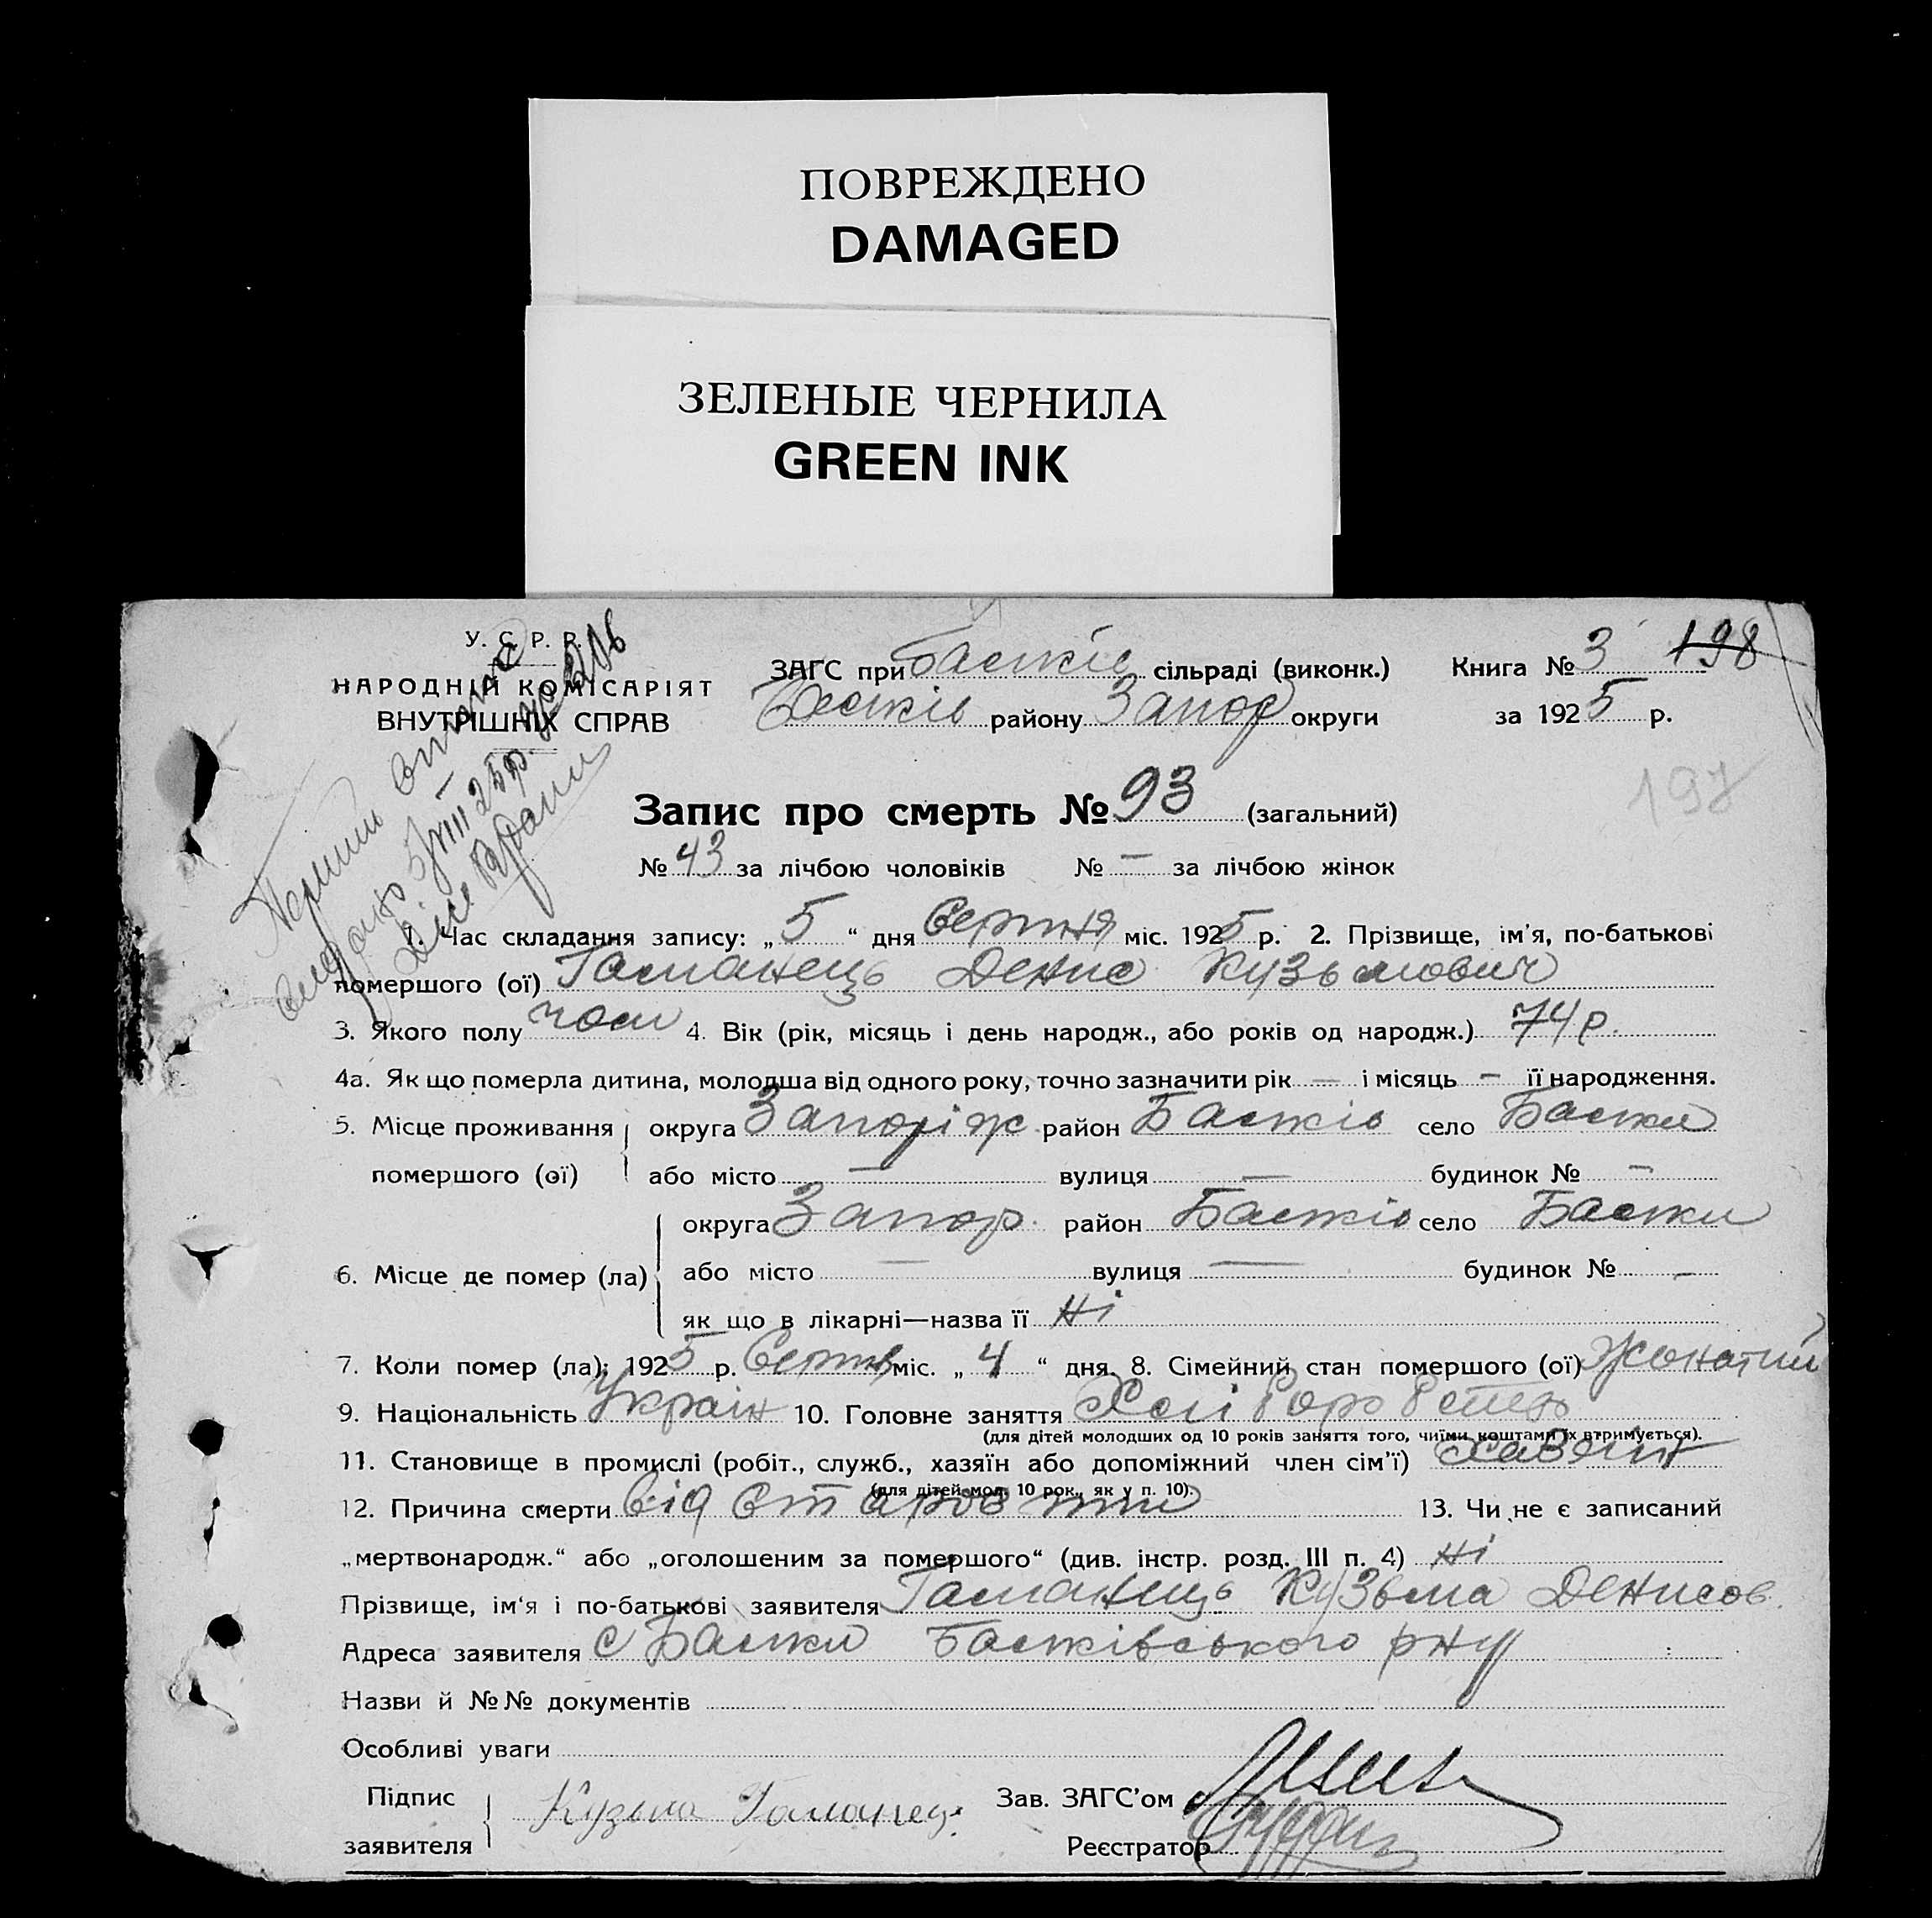 ПОВРЕЖДЕНО
DAMAGED
ЗЕЛЕНЫЕ ЧЕРНИЛА
GREEN INK
У. С. Р. Р.
НАРОДНІЙ КОМІСАРІЯТ
ВНУТРІШНІХ СПРАВ
ЗАГС при Бастків сільраді (виконк.) Книга № 3 198
району Запор округи за 1925 р.
197
Запис про смерть № 93 (загальний)
№ 43 за лічбою чоловіків № — за лічбою жінок
1. Час складання запису: „5“ дня Серпня міс. 1925 р. 2. Прізвище, ім'я, по-батькові
помершого (ої) Гаманець Денис Кузьмович
3. Якого полу 4. Вік (рік, місяць і день народж., або років од народж.) 74 р.
4а. Як що померла дитина, молодша від одного року, точно зазначити рік — і місяць — її народження.
5. Місце проживання округа Запоріж район село
помершого (ої) або місто — вулиця — будинок № —
округа Запор. район село
6. Місце де помер (ла) або місто — вулиця — будинок № —
як що в лікарні—назва її Ні
7. Коли помер (ла): 1925 р. Серпня міс. „4“ дня 8. Сімейний стан помершого (ої) Жонатий
9. Національність Україн 10. Головне заняття Хліборобство
(для дітей молодших од 10 років заняття того, чиїми коштами їх втримується).
11. Становище в промислі (робіт., служб., хазяїн або допоміжний член сім'ї) Хазяїн
(для дітей мол. 10 рок., як у п. 10).
12. Причина смерти від старости 13. Чи не є записаний
„мертвонародж.“ або „оголошеним за помершого“ (див. інстр. розд. III п. 4) Ні
Прізвище, ім'я і по-батькові заявителя Гаманець Кузьма Денисов.
Адреса заявителя с р-ну
Назви й №№ документів
Особливі уваги
Підпис заявителя Кузьма Гаманець
Зав. ЗАГС'ом
Реєстратор